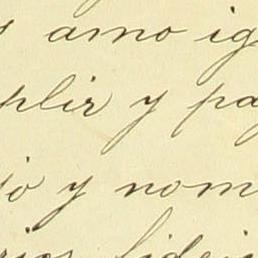 amo ig
plir y pa
jo y nom
rios, fidei